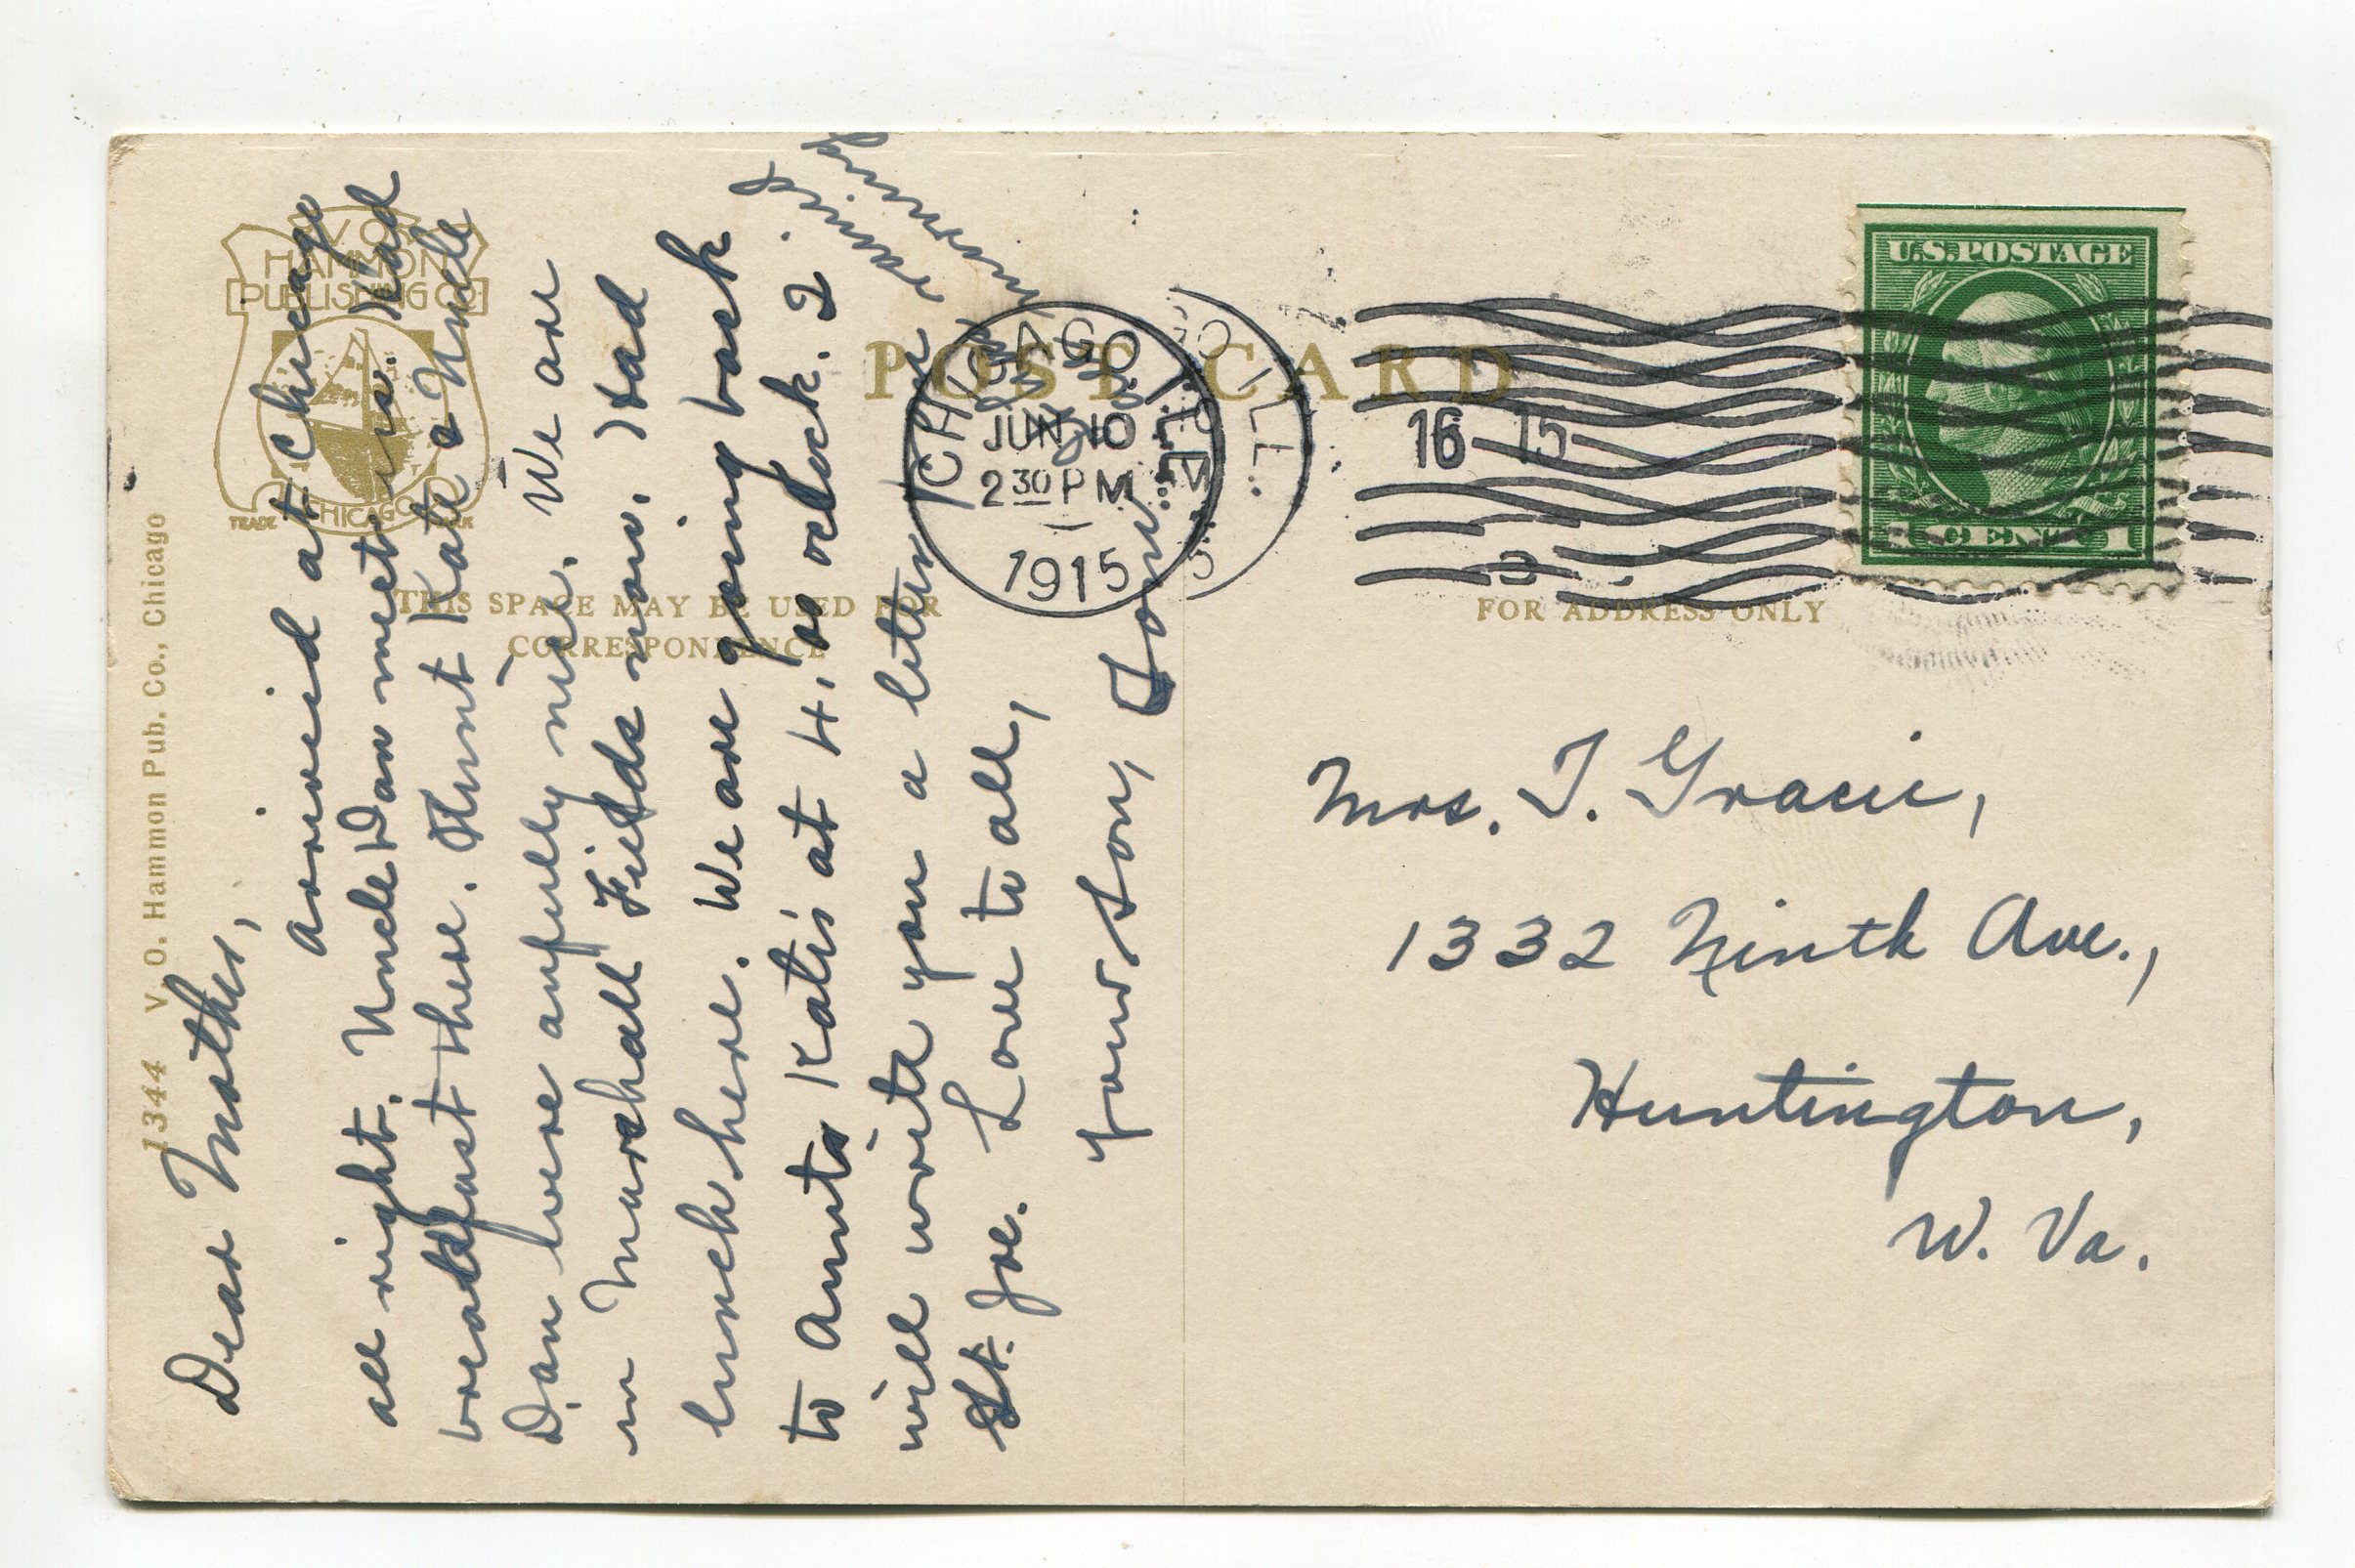 1344 V. O. Hammon Pub. Co., Chicago
V. O.
HAMMON
PUBLISHING CO
CHICAGO
TRADE MARK
POST CARD
THIS SPACE MAY BE USED FOR
CORRESPONDENCE
FOR ADDRESS ONLY
CHICAGO, ILL.
JUN 10
2 30 PM
1915
16 15
3
U.S. POSTAGE
1 CENT 1
Dear Mother,
arrived at Chicago
all right. Uncle Dan meet us. Had
breakfast there. Aunt Kate & Uncle
Dan were awfully nice. We are
in Marshall Fields now. Had
lunch here. We are going back
to Aunt Kate's at 4, oclock. I
will write you a letter
St. Joe. Love to all,
your son,
Mrs. T. Gracie,
1332 Ninth Ave.,
Huntington,
W. Va.